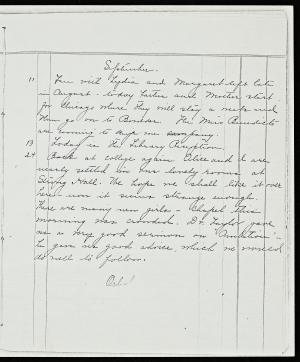 September.
11 Lydia and Margaret left late
in August - today Father and Mother start
for Chicago where they will stay a week and
then go on to Denver. The Miss Benedicts
are coming to keep me company.
13 Today is the Library Reception.
24 Back at college again. Alice and I are
nearly settled in our lovely rooms at
Strong Hall. We hope we shall like it over
here - now it seems strange enough.
There are many new girls - Chapel this
morning was crowded. Dr. Taylor gave
us a very good sermon on
he gave us good advice which we would
do well to follow.
Oct